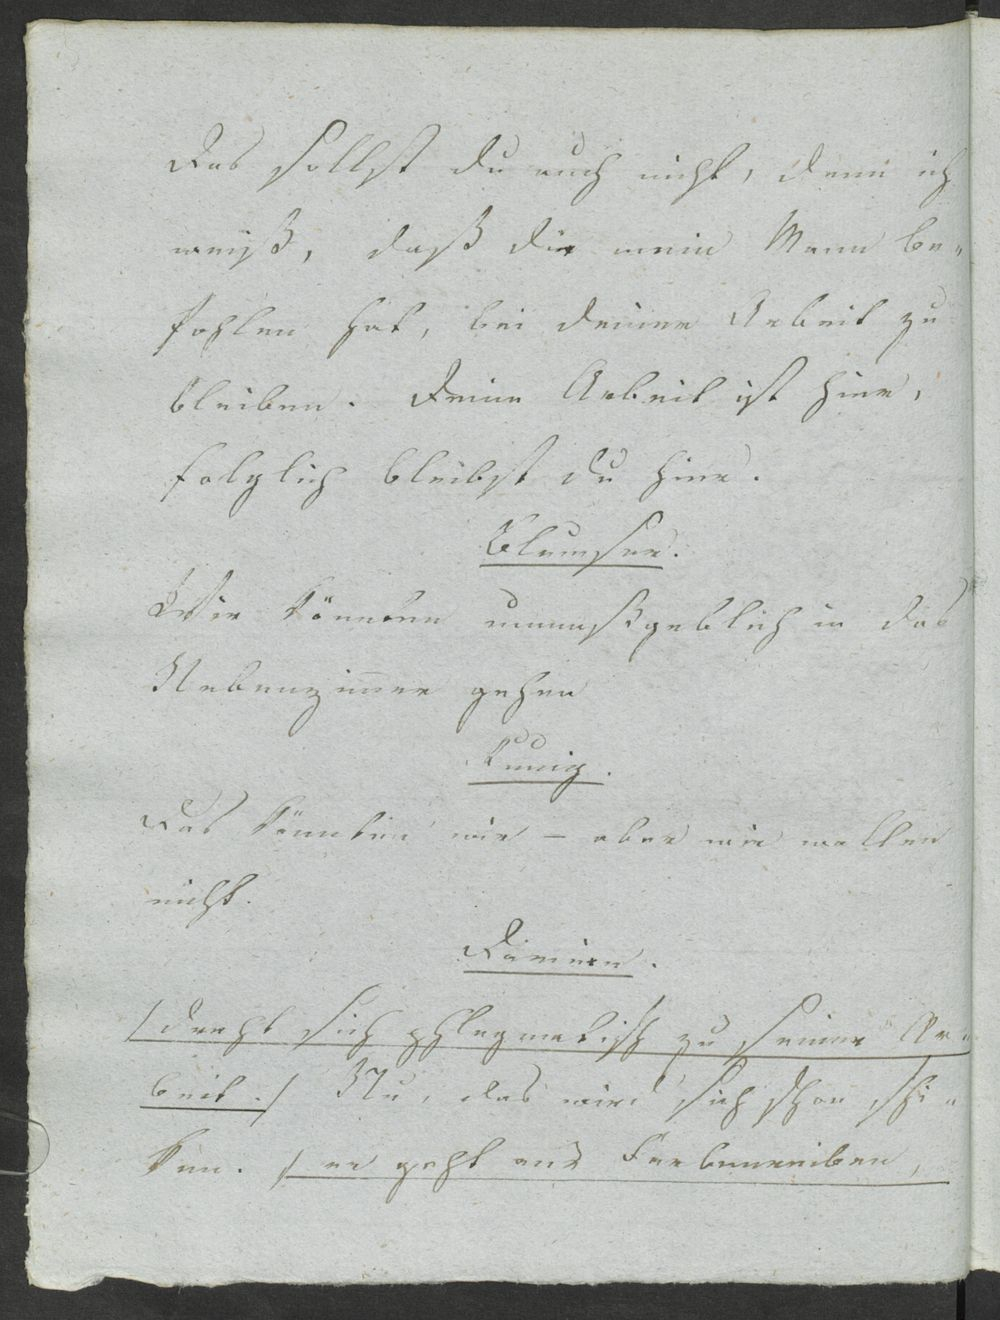 Das sollst du auch nicht, denn ich
weiß, daß dir mein Mann be-
fohlen hat, bei deiner Arbeit zu
bleiben. Deine Arbeit ist hier,
folglich bleibst du hier.
Blumser.
Wir könnten unmaßgeblich in das
Nebenzimer gehen
Kunig.
Das könnten wir – aber wir wollen
nicht.
Damian.
/ dreht sich phlegmatisch zu seiner Ar-
beit. / Nu, das wird sich schon schi-
ken. / er geht ans Farbenreiben,